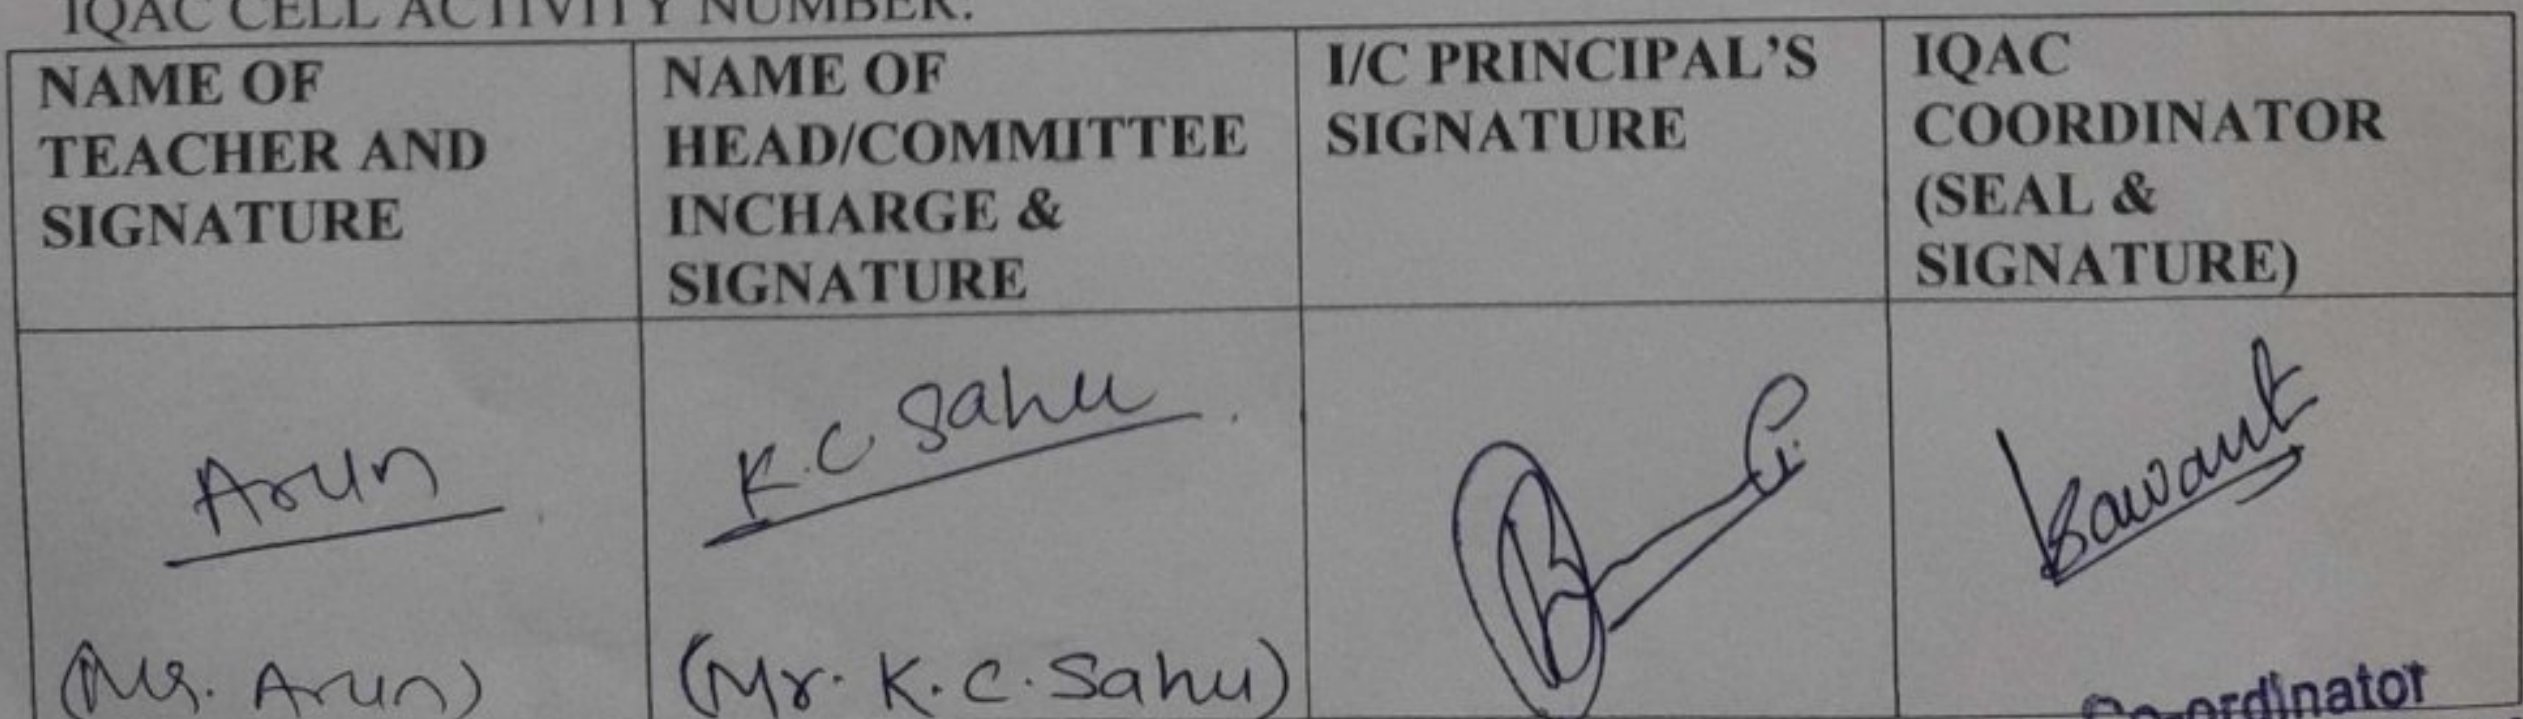 IQAC CELL ACTIVITY NUMBER:
NAME OF
TEACHER AND
SIGNATURE
NAME OF
HEAD/COMMITTEE
INCHARGE &
SIGNATURE
I/C PRINCIPAL'S
SIGNATURE
IQAC
COORDINATOR
(SEAL &
SIGNATURE)
Arun
K.C Sahu
(Mr. Arun)
(Mr. K. C. Sahu)
Co-ordinator